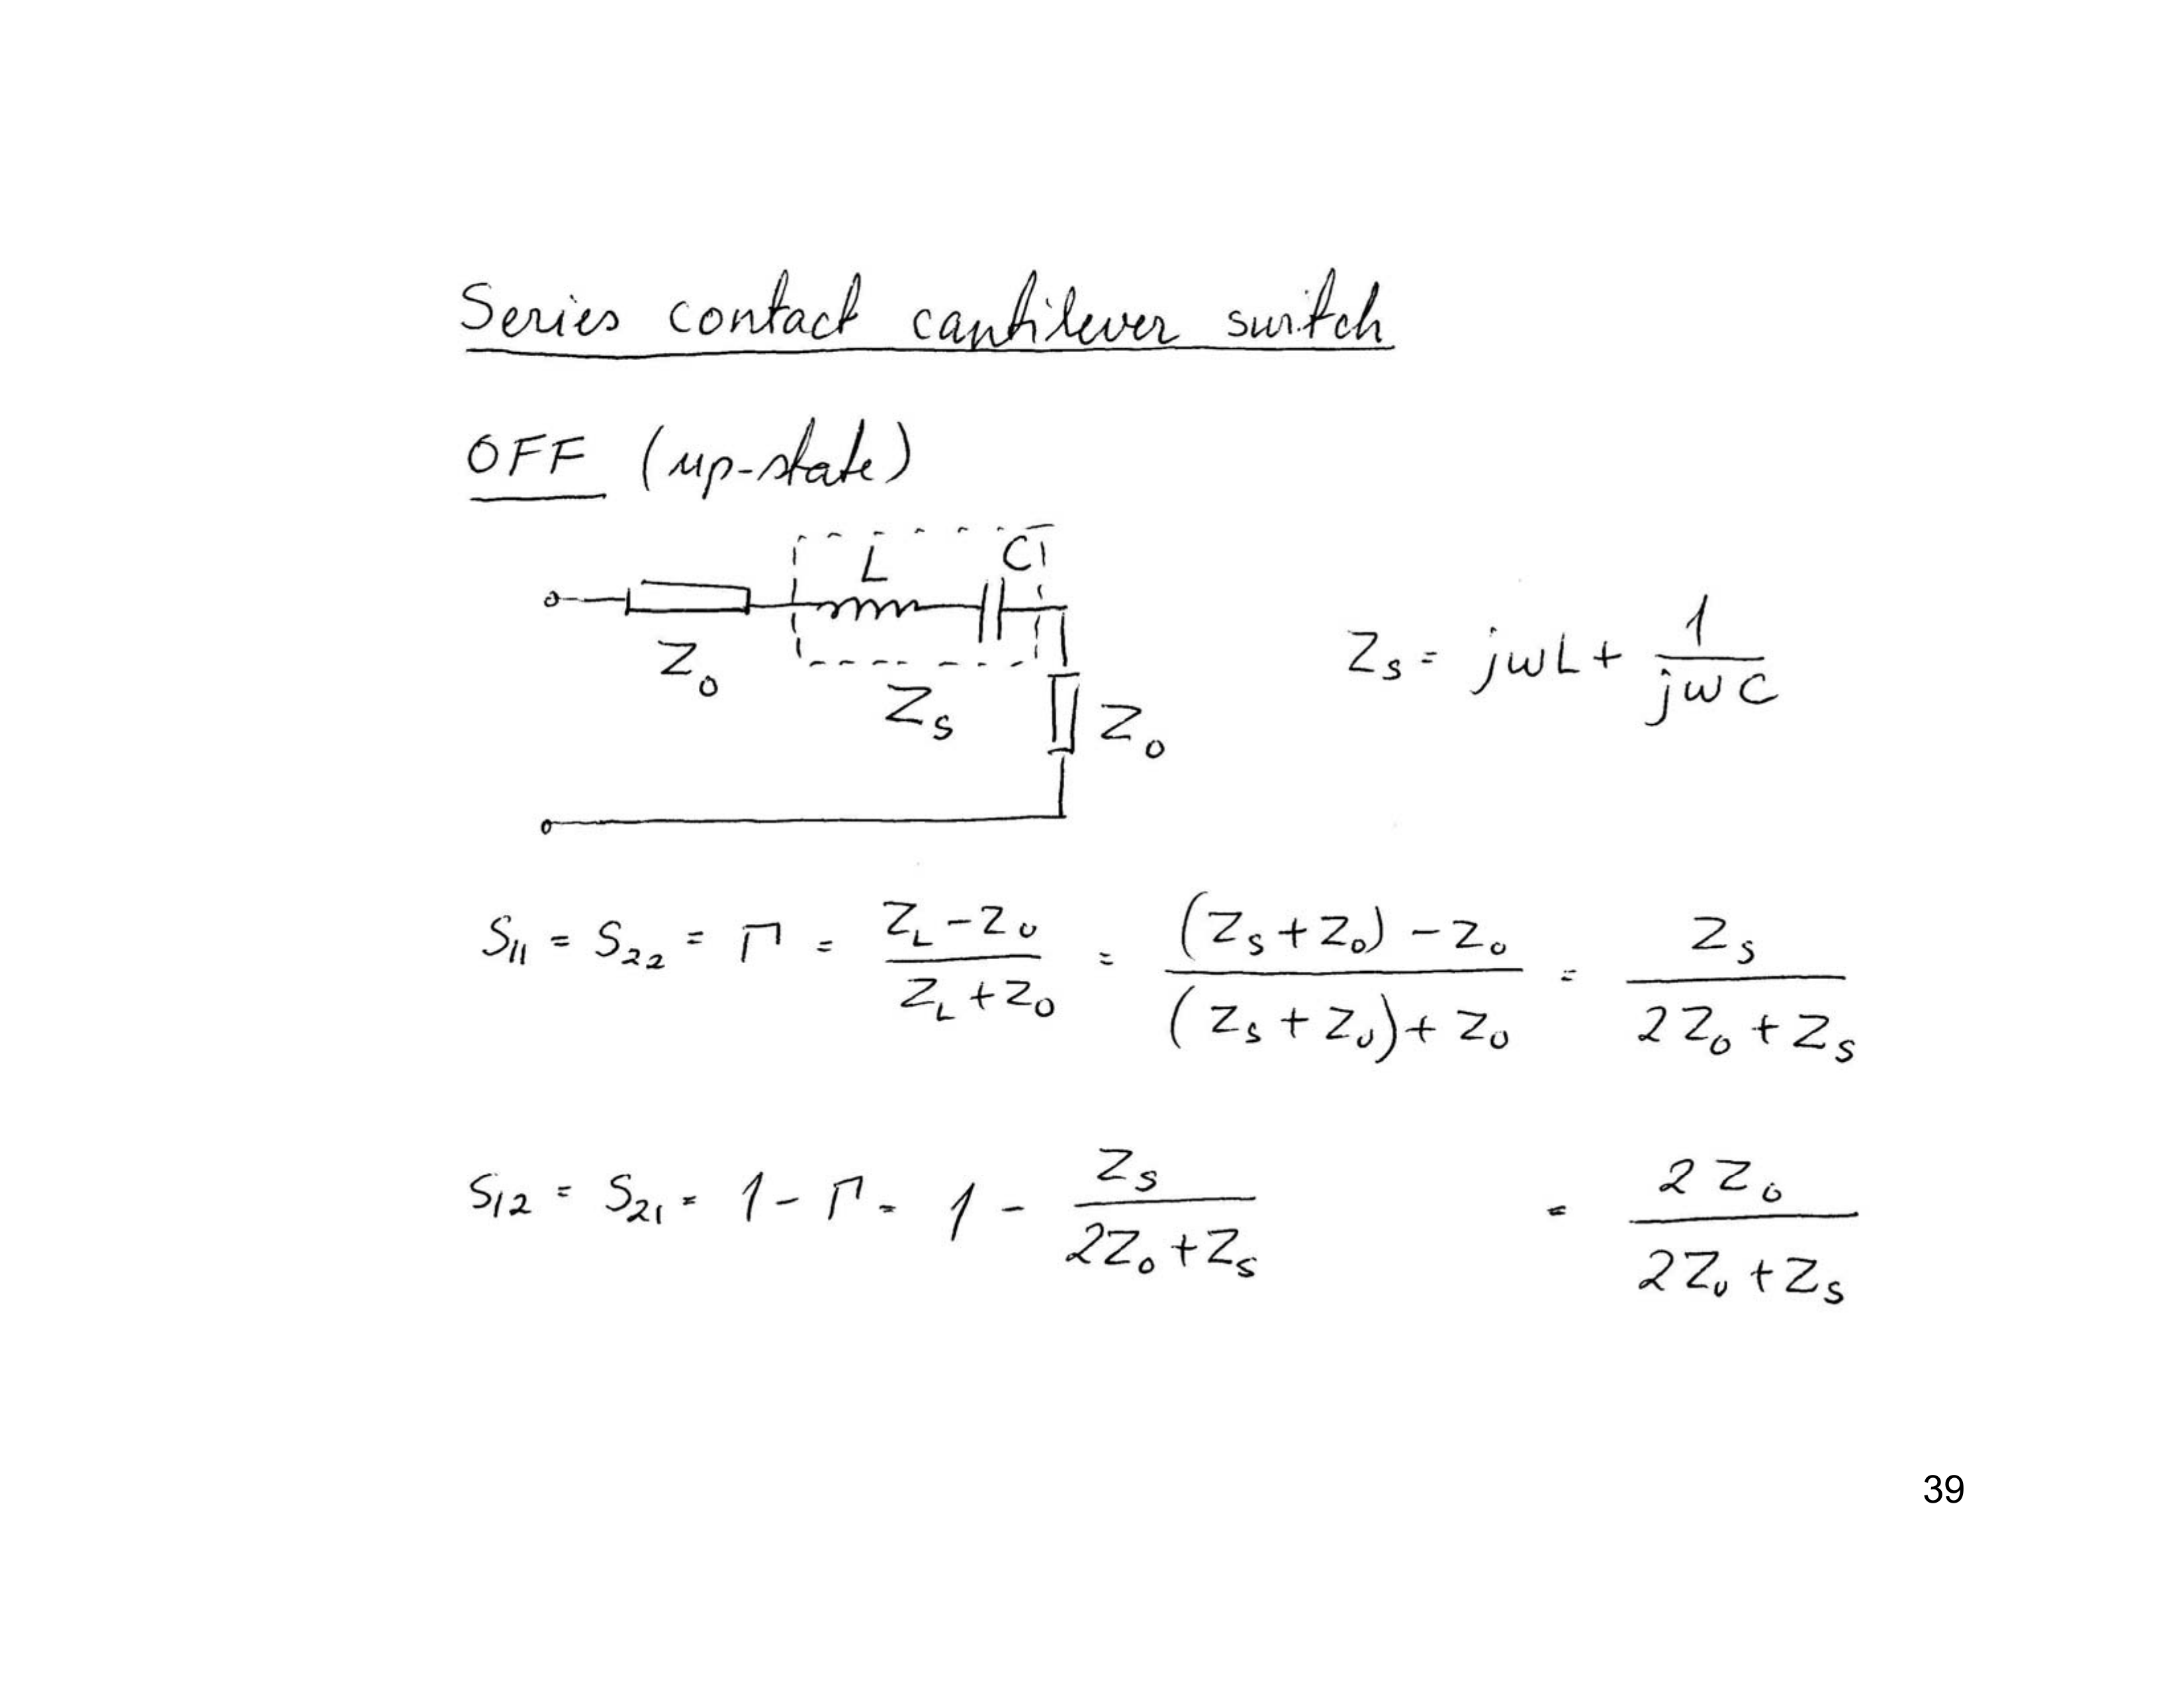 Series contact cantilever switch
OFF (up-state)
L C
Z₀
Z_S
Z₀
Z_S = jωL + 1/(jωC)
S₁₁ = S₂₂ = Γ = (Z_L - Z₀)/(Z_L + Z₀) = ((Z_S + Z₀) - Z₀)/((Z_S + Z₀) + Z₀) = Z_S/(2Z₀ + Z_S)
S₁₂ = S₂₁ = 1 - Γ = 1 - Z_S/(2Z₀ + Z_S) = 2Z₀/(2Z₀ + Z_S)
39